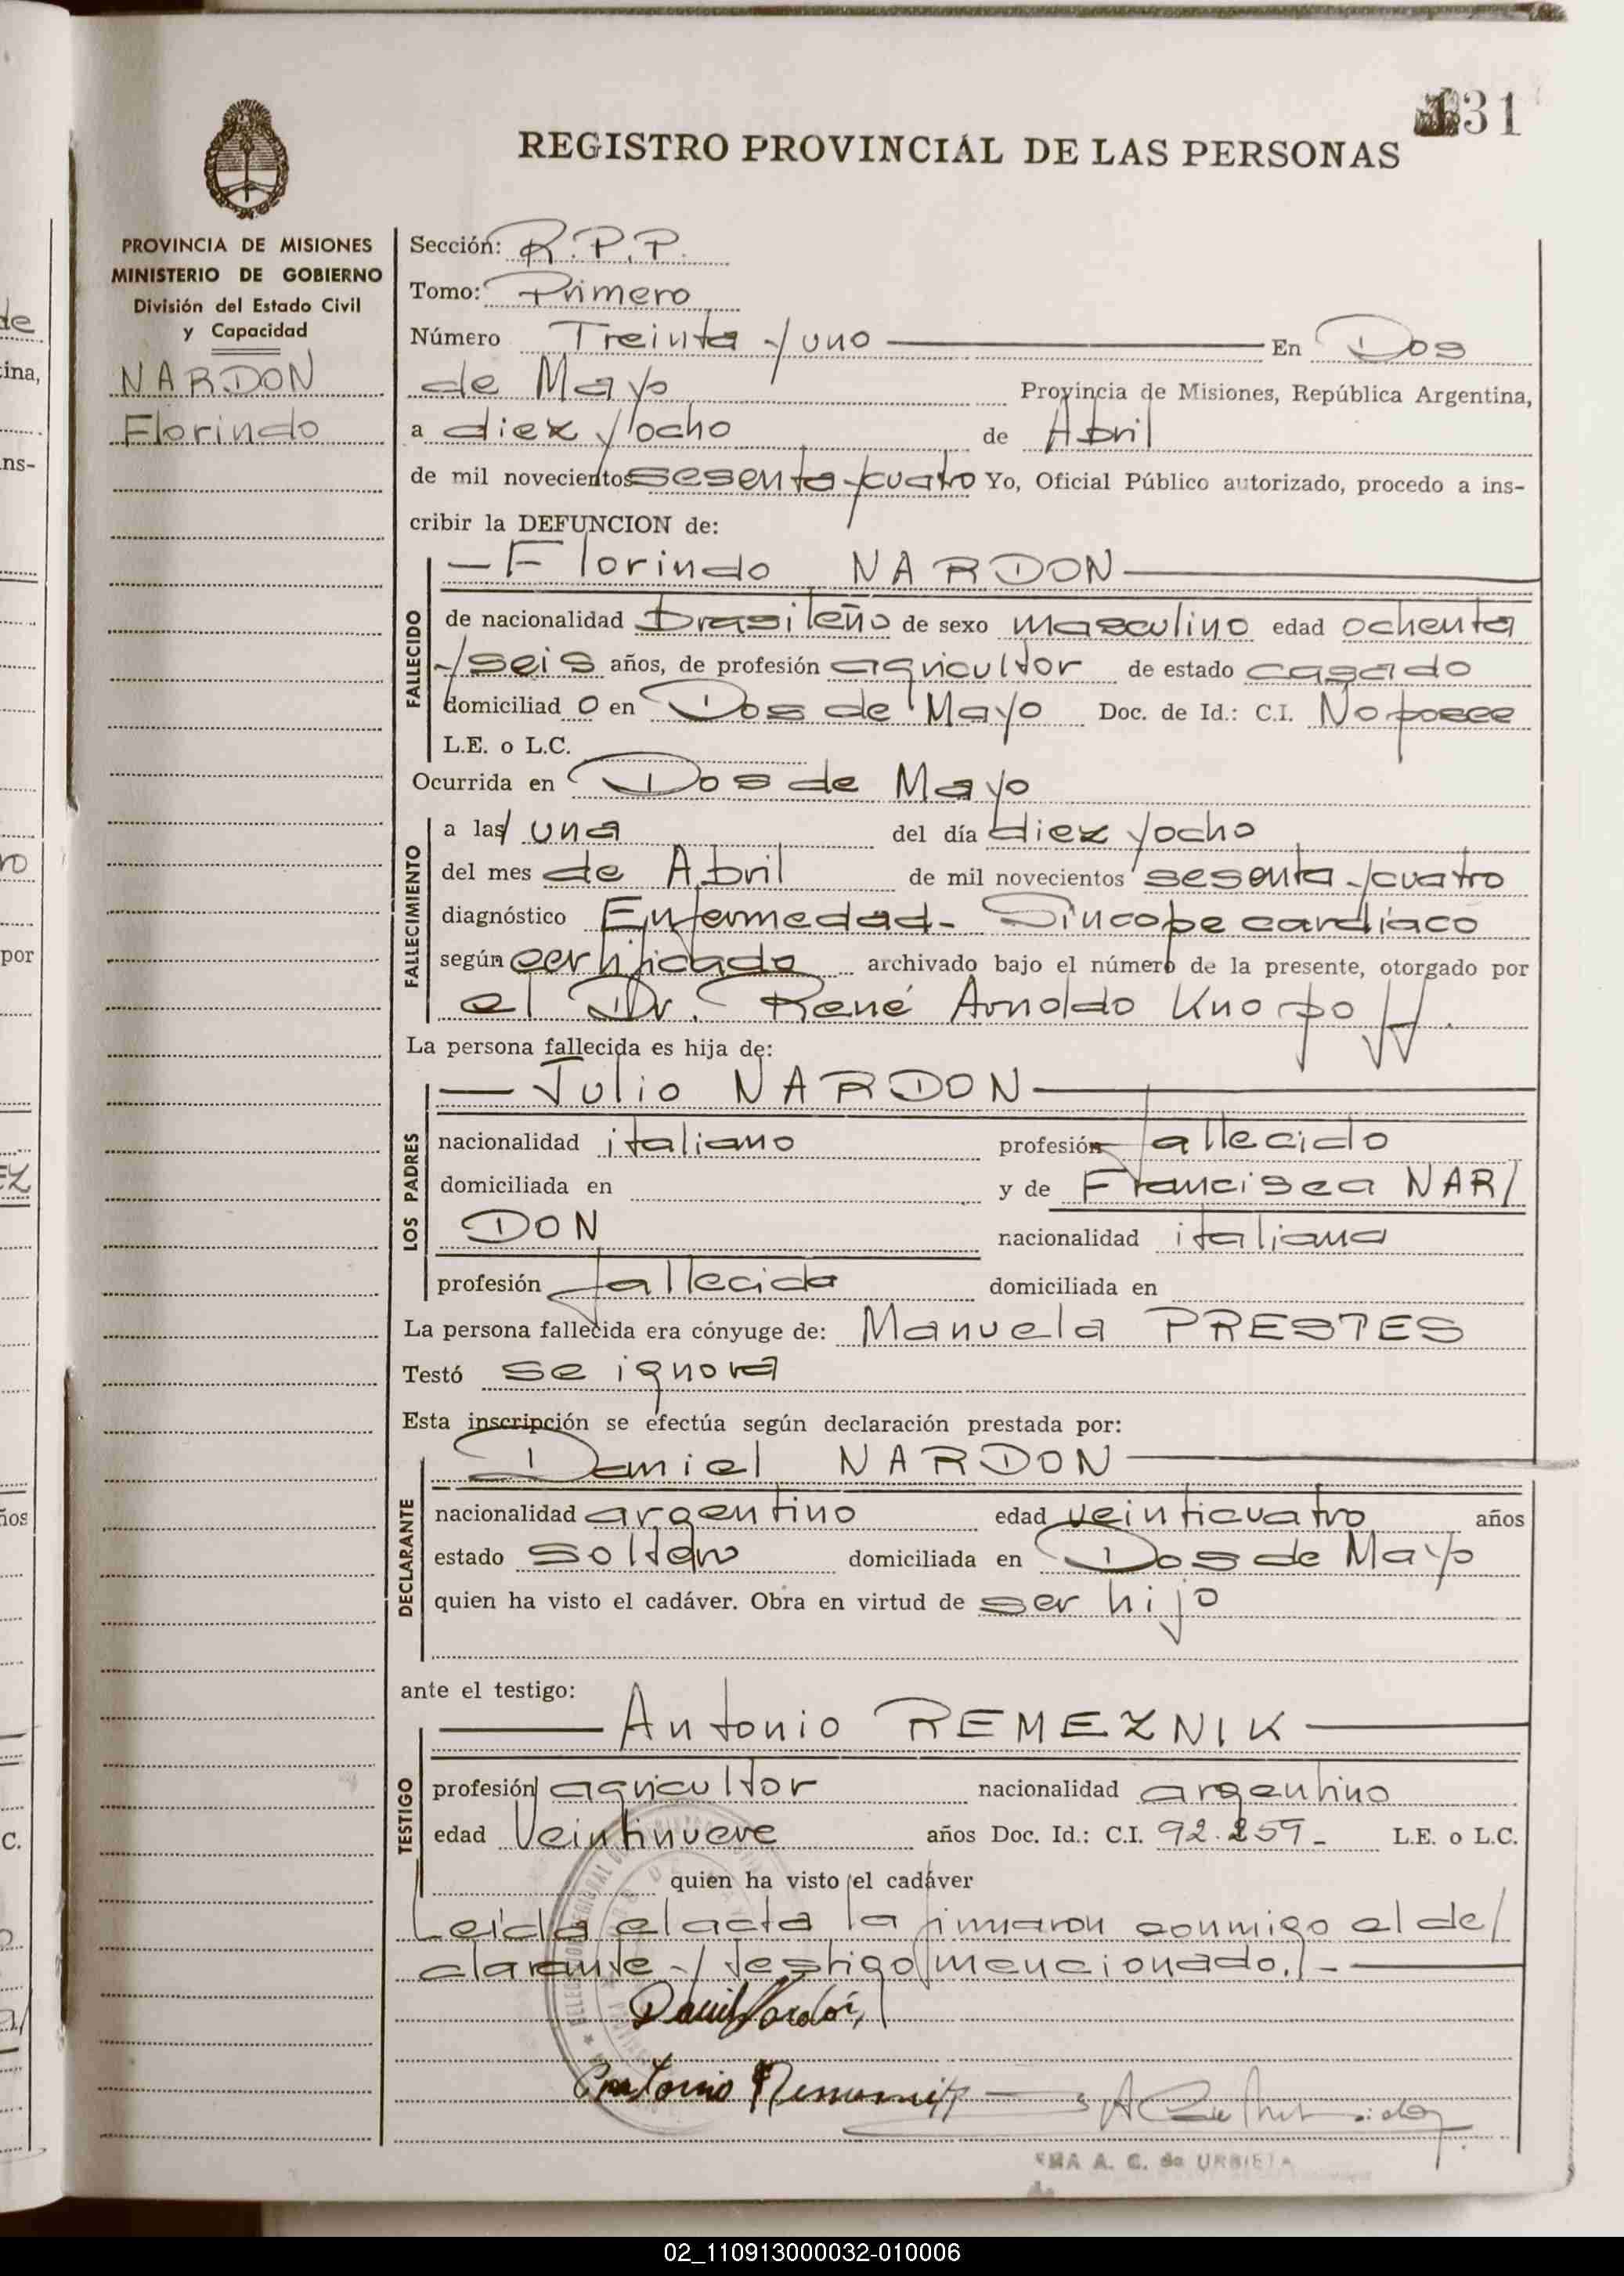 31
REGISTRO PROVINCIAL DE LAS PERSONAS
PROVINCIA DE MISIONES
MINISTERIO DE GOBIERNO
División del Estado Civil
y Capacidad
NARDON
Florindo
Sección: R.P.P.
Tomo: Primero
Número Treinta y uno En Dos
de Mayo Provincia de Misiones, República Argentina,
a diez y ocho de Abril
de mil novecientos sesenta y cuatro Yo, Oficial Público autorizado, procedo a ins-
cribir la DEFUNCION de:
— Florindo NARDON —
FALLECIDO
de nacionalidad brasileño de sexo masculino edad ochenta
y seis años, de profesión agricultor de estado casado
domiciliad o en Dos de Mayo Doc. de Id.: C.I. No posee
L.E. o L.C.
Ocurrida en Dos de Mayo
FALLECIMIENTO
a las una del día diez y ocho
del mes de Abril de mil novecientos sesenta y cuatro
diagnóstico Enfermedad - Síncope cardíaco
según certificado archivado bajo el número de la presente, otorgado por
el Dr. René Arnoldo Knopoff.
La persona fallecida es hija de:
— Julio NARDON —
LOS PADRES
nacionalidad italiano profesión fallecido
domiciliada en y de Francisca NAR/
DON nacionalidad italiana
profesión fallecida domiciliada en
La persona fallecida era cónyuge de: Manuela PRESTES
Testó se ignora
Esta inscripción se efectúa según declaración prestada por:
Daniel NARDON —
DECLARANTE
nacionalidad argentino edad veinticuatro años
estado soltero domiciliada en Dos de Mayo
quien ha visto el cadáver. Obra en virtud de ser hijo
ante el testigo:
— Antonio REMEZNIK —
TESTIGO
profesión agricultor nacionalidad argentino
edad Veintinueve años Doc. Id.: C.I. 92.259 - L.E. o L.C.
quien ha visto el cadáver
Leída el acta la firmaron conmigo el de/
clarante y testigo mencionado. -
Daniel Nardon
Antonio
A. C. de URBIETA
02_110913000032-010006